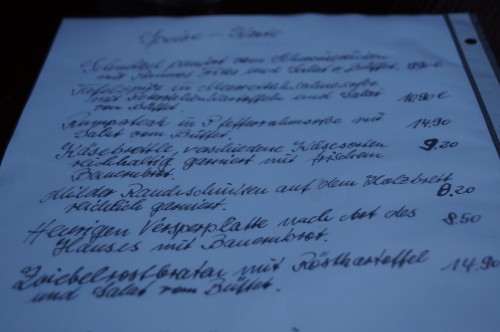 Speise - Karte
Schnitzel paniert vom Schweinerücken
mit Pommes Frites und Salat v. Büffet.
in Meerrettichsahnesoße
mit Petersilienkartoffeln und Salat
vom Büffet 10.90 €
Rumpsteak in Pfefferrahmsoße mit
Salat vom Büffet. 14.90
Käsebrettle, verschiedene Käsesorten
reichhaltig garniert mit frischem
Bauernbrot. 9.20
Milder Rauchschinken auf dem Holzbrett
reichlich garniert. 8.20
Heurigen Vesperplatte nach Art des
Hauses mit Bauernbrot. 8.50
Zwiebelrostbraten mit Röstkartoffel
und Salat vom Büffet. 14.90